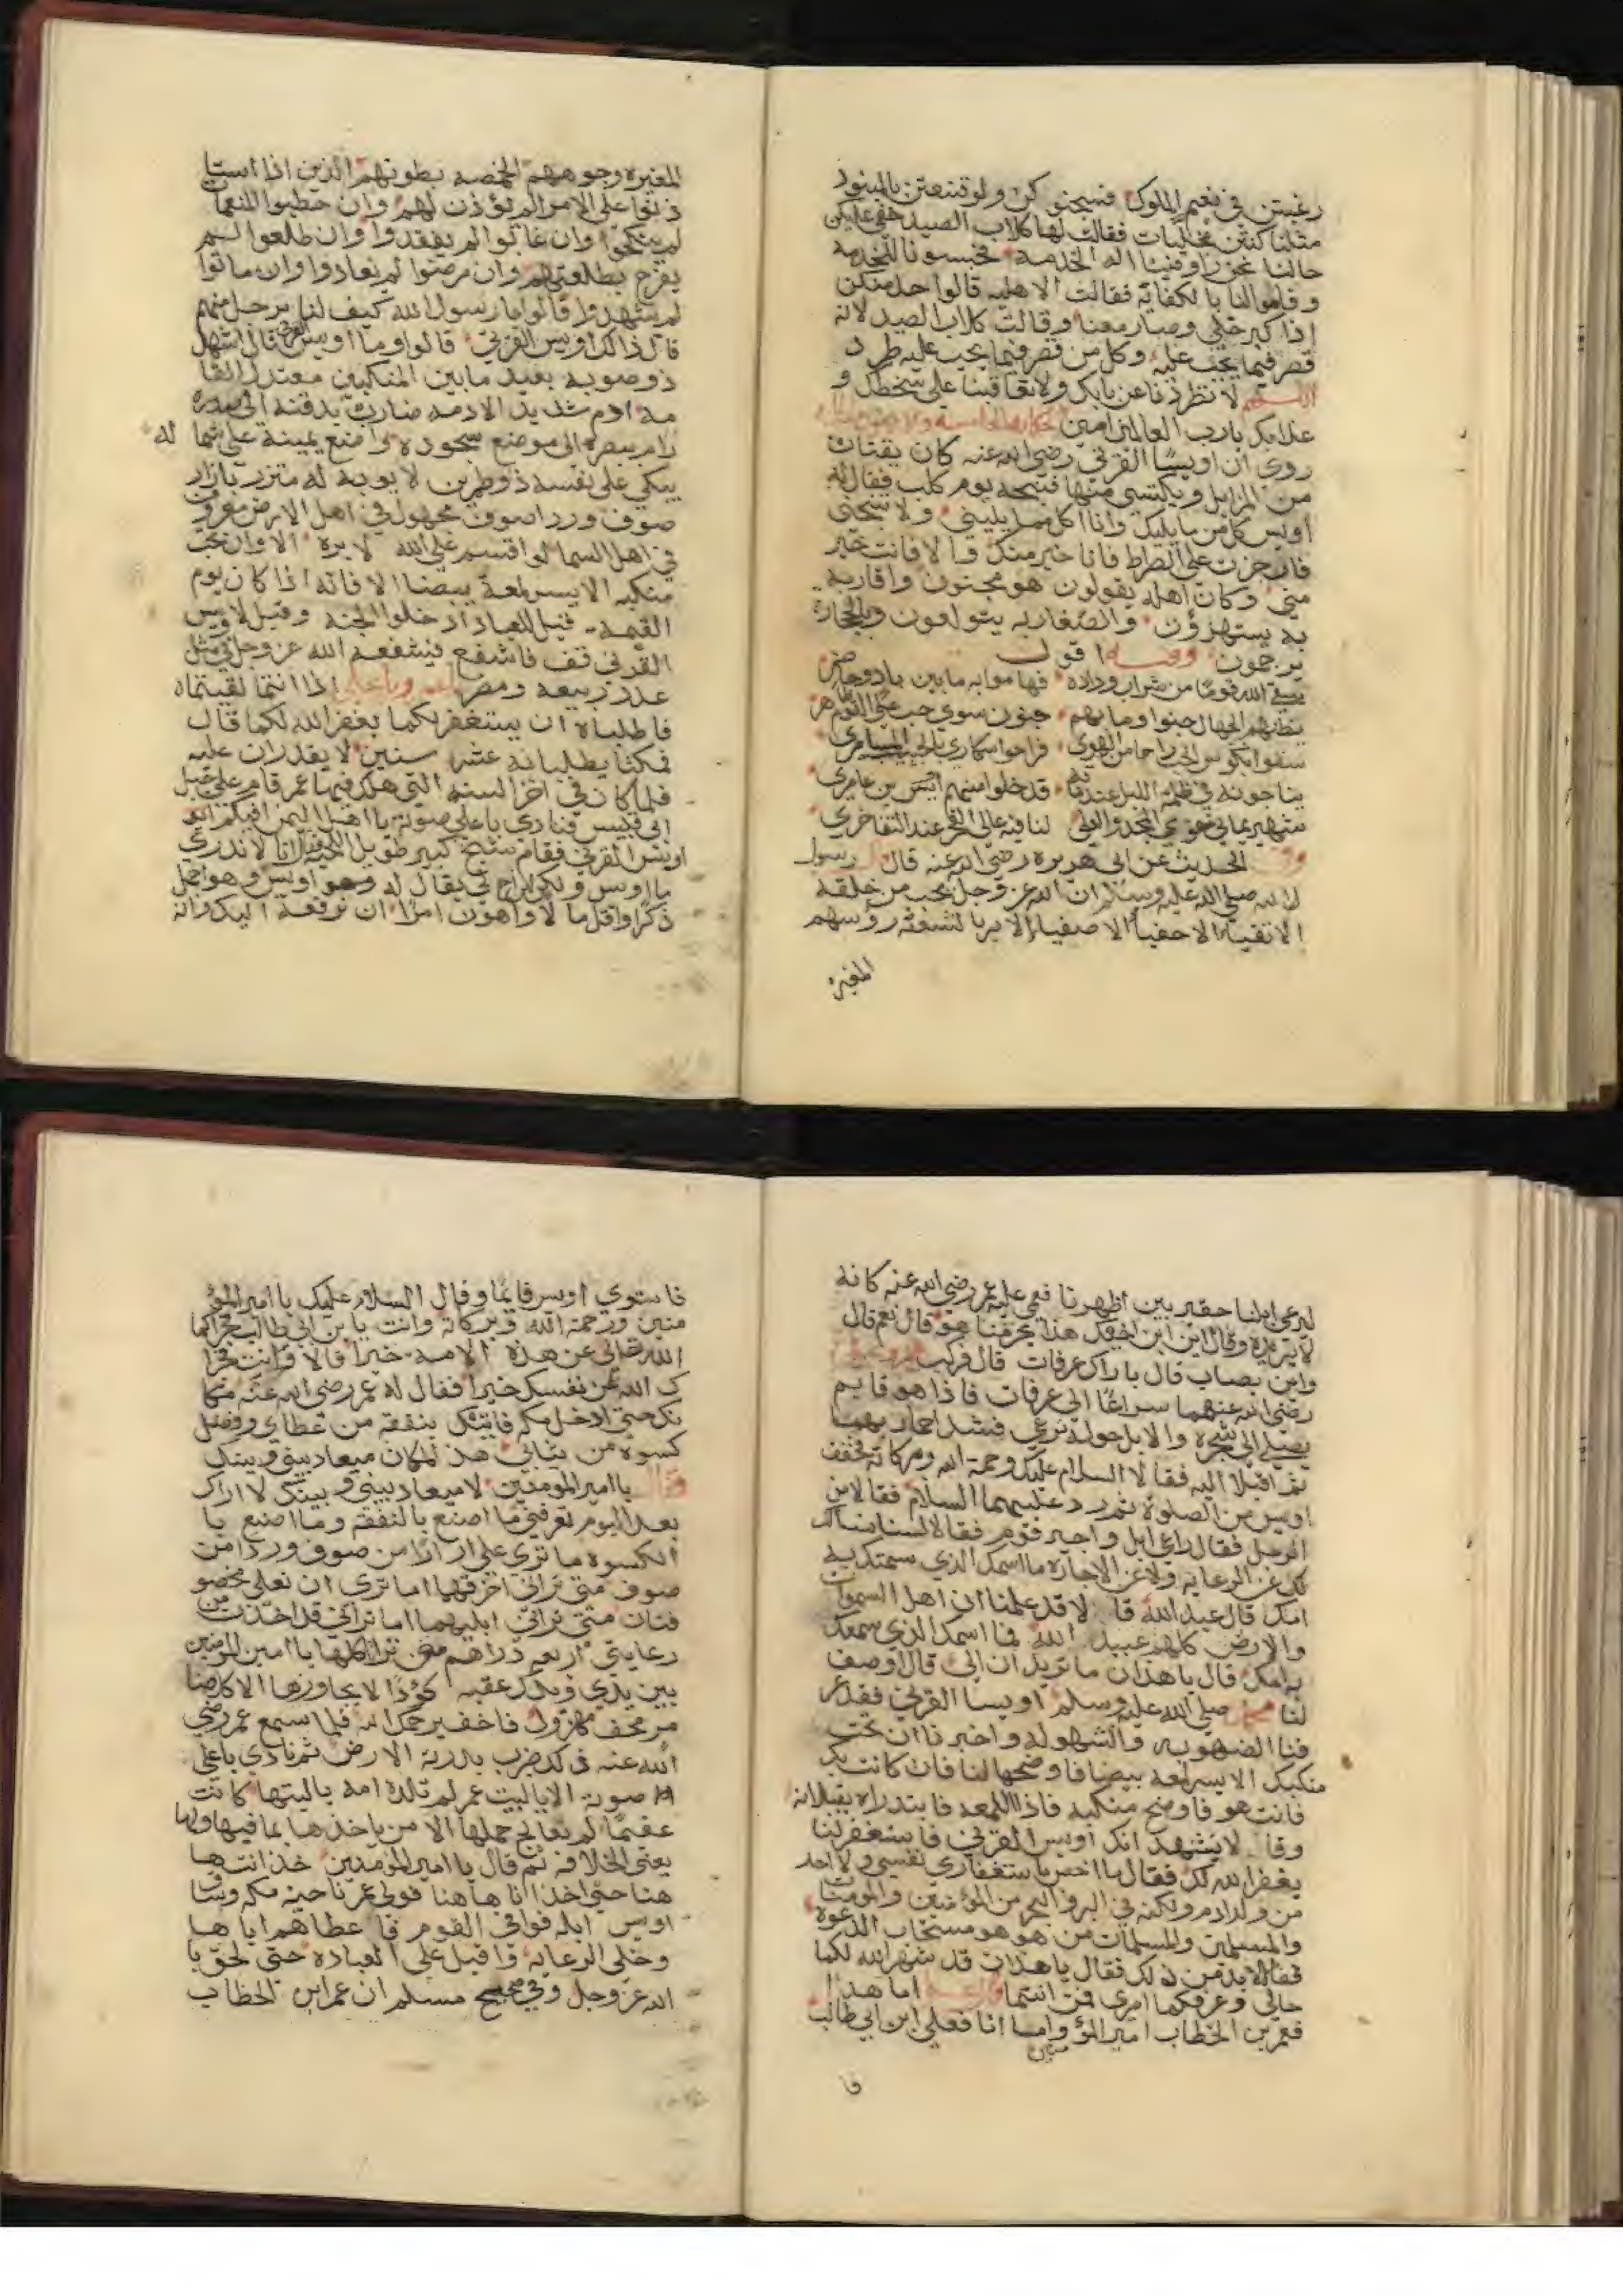 رغبتن في نعيم الملوك فسجنوكن ولو قنعتن بالمنبود
مثلنا كنتن مخليات فقالت لها كلاب الصيد خفي عليكن
حالنا نحن راو فينا اله الخدمه فحبسونا للخدمه
وقاموا لنا بالكفاية فقالت الاهليه قالوا حد منكن
اذا كبر خلي وصار معنا وقالت كلاب الصيد لانه
قصر فيما يجب عليه وكل من قصر فيما يجب عليه طرد
اللهم لا تطردنا عن بابك ولا تعاقبنا على سخطك و
عذابك يارب العالمين امين الحكاية
روي ان اويسا القرني رضي الله عنه كان يقتات
من المزابل ويكتسي منها فنبحه يوم كلب فقال له
اويس كل من ما يليك وانا اكل مما يليني ولا تنبحني
فان جزت على الصراط فانا خير منك والا فانت خير
مني وكان اهله يقولون هو مجنون واقاربه
به يستهزؤن والصغار به يتولعون وبالحجارة
يرجمون وفيه اقول
سقي الله قوما من شراب وداده فهاموا به ما بين باد وحاضر
يظنهم الجهال جنوا وما بهم جنون سوي حب على القوم ظاهر
سقوا بكوس الحب راحا من الهوى فراحوا سكاري بالحبيب المسامري
يناجونه في ظلمة الليل عندما قد خلوا منهم اويس بن عامري
شهير يماني حوي المجد والعلي لنا فيه عالي الفخر عند التفاخري
وفي الحديث عن ابي هريره رضي الله عنه قال رسول
الله صلى الله عليه وسلم ان الله عز وجل يحب من خلقه
الاتقيا الاحفيا الاصفيا الابريا لشعثه رؤسهم
المغبره
المغيره وجوههم الخمصه بطونهم الذين اذا استا
ذنوا على الامر الم يؤذن لهم وان خطبوا المنعمات
لم ينكحوا وان غابوا لم يفقدوا وان طلعوا لم
يفرح بطلعتهم وان مرضوا لم يعادوا وان ماتوا
لم يشهدوا قالوا يا رسول الله كيف لنا برجل منهم
قال ذالك اويس القرني قالوا وما اويس القرني قال اشهل
ذو صوبه بعيد ما بين المنكبين معتدل القا
مه ادم شديد الادمه ضارب بدقنه الى صدره
رام ببصره الى موضع سجوده واضع يمينه على شما له
يبكي على نفسه ذو طمرين لا يوبه له متزر بازار
صوف وردا صوف مجهول في اهل الارض معروف
في اهل السما لو اقسم على الله لابره الا وان تحت
منكبه الايسر لمعة بيضا الا فانه اذا كان يوم
القيمه قيل للعباد ادخلوا الجنة وقيل لاويس
القرني قف فاشفع فيشفعه الله عز وجل في مثل
عدد ربيعه ومضر يا عمر ويا علي اذا انتما لقيتماه
فاطلباه ان يستغفر لكما يغفر الله لكما قال
فمكثا يطلبانه عشر سنين لا يقدران عليه
فلما كان في اخر السنه التي هلك فيها عمر قام على جبل
ابي قبيس فنادي باعلي صوته يا اهل اليمن افيكم
اويس القرني فقام شيخ كبير طويل اللحيه فقال انا لا ندري
ما اويس ولكن ابن اخ لي يقال له وهو اويس وهو اخمل
ذكرا واقل ما لا واهون امرا ان نرفعه اليك وانه
ليرعي ابلنا حقير بين اظهرنا فعمي عليه عمر رضي الله عنه كانه
لا يريده وقال اين ابن اخيك هذا بحرمنا هو قال نعم قال
واين يصاب قال باراك عرفات قال فركب عمر وعلي
رضي الله عنهما سراعا الى عرفات فاذا هو قايم
يصلي الى شجره والابل حوله ترعي فشد احماريهما
ثم اقبلا اليه فقالا السلام عليك ورحمة الله وبركاته فخفف
اويس من الصلوة ثم رد عليهما السلام فقالا من
الرجل فقال راعي ابل واجير قوم فقالا لسنا نسالك
لك عن الرعايه ولا عن الاجاره ما اسمك الذي سمتك به
امك قال عبد الله قالا قد علمنا ان اهل السموات
والارض كلهم عبيد الله فما اسمك الذي سمتك
به امك قال يا هذان ما تريدان الي قالا وصف
لنا محمد صلى الله عليه وسلم اويسا القرني فقد عر
فنا الصهوبه والشهوله واخبرنا ان تحت
منكبك الايسر لمعه بيضا فاوضحها لنا فان كانت بك
فانت هو فاوضح منكبه فاذا اللمعه فابتدراه يقبلانه
وقالا نشهد انك اويس القرني فاستغفر لنا
يغفر الله لك فقال ما اخص باستغفاري نفسي ولا احد
من ولد ادم ولكنه في البر والبحر من المؤمنين والمومنات
والمسلمين والمسلمات من هو هو مستجاب الدعوه
فقالا لا بد من ذلك فقال يا هذان قد شهر الله لكما
حالي وعرفكما امري فمن انتما اما هذا
فعمر بن الخطاب امير المؤمنين واما انا فعلي ابن ابي طالب
فا
فاستوي اويس قايما وقال السلام عليك يا امير المؤ
منين ورحمة الله وبركاته وانت يا بن ابي طالب فجزاكما
الله تعالى عن هذه الامه خيرا قالا وانت فجزا
ك الله عن نفسك خيرا فقال له عمر رضي الله عنه مكا
نك حتى ادخل مكه فاتيك بنفقة من عطاي وفضل
كسوة من ثيابي هذا المكان ميعاد بيني وبينك
فقال يا امير المومنين لا ميعاد بيني وبينك لا اراك
بعد اليوم تعرفني ما اصنع بالنفقه وما اصنع با
الكسوه ما تري علي ازارا من صوف وردا من
صوف متي تراني اخرقهما اما تري ان نعلي مخصو
فتان متي تراني ابليهما اما تراني قد اخذت من
رعايتي اربعه دراهم متي تراني اكلها يا امير المومنين
بين يدي ويدك عقبه كؤدا لا يجاوزها الا كل ضا
مر مخف مهزول فاخف يرحمك الله فلما سمع عمر رضي
الله عنه ذلك ضرب بدرته الارض ثم نادي باعلي
صوته الا يا ليت عمر لم تلده امه يا ليتها كانت
عقيما لم تعالج حملها الا من ياخذها بما فيها ولها
يعني الخلافه ثم قال يا امير المؤمنين خذ انت ها
هنا حتي اخذ انا ها هنا فولى عمر ناحية مكه وسا
اويس ابله فوافي القوم فا عطاهم اياها
وخلي الرعايه واقبل على العباده حتى لحق با
الله عز وجل وفي صحيح مسلم ان عمر ابن الخطاب